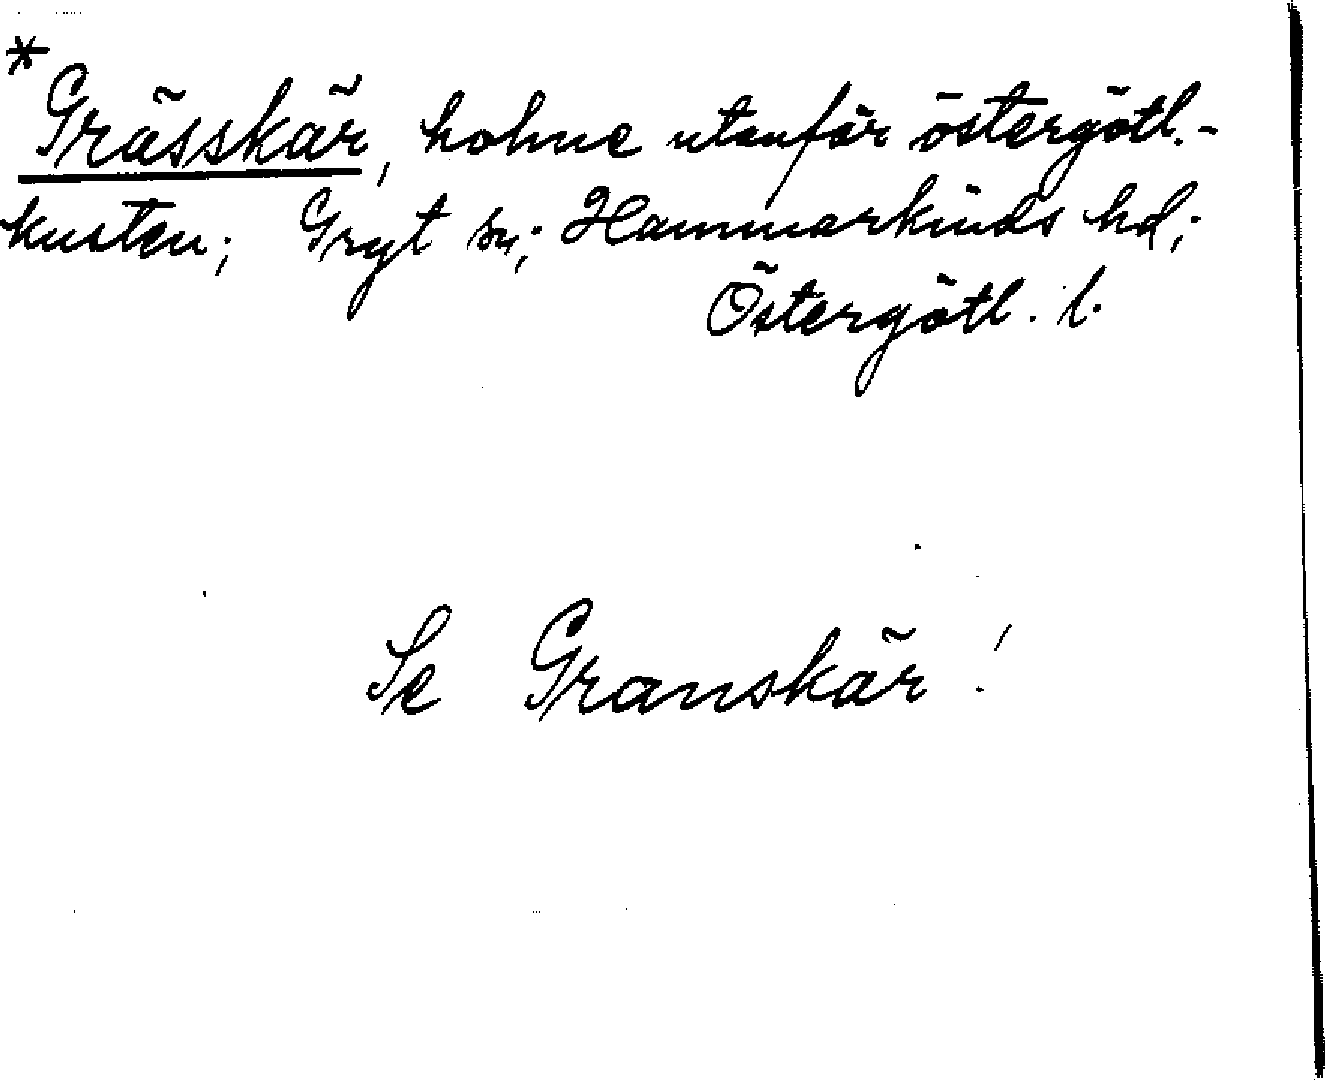 *
Grässkär, holme utanför östergötl.-
kusten; Gryt sn; Hammarkinds hd;
Östergötl. l.
Se Granskär!